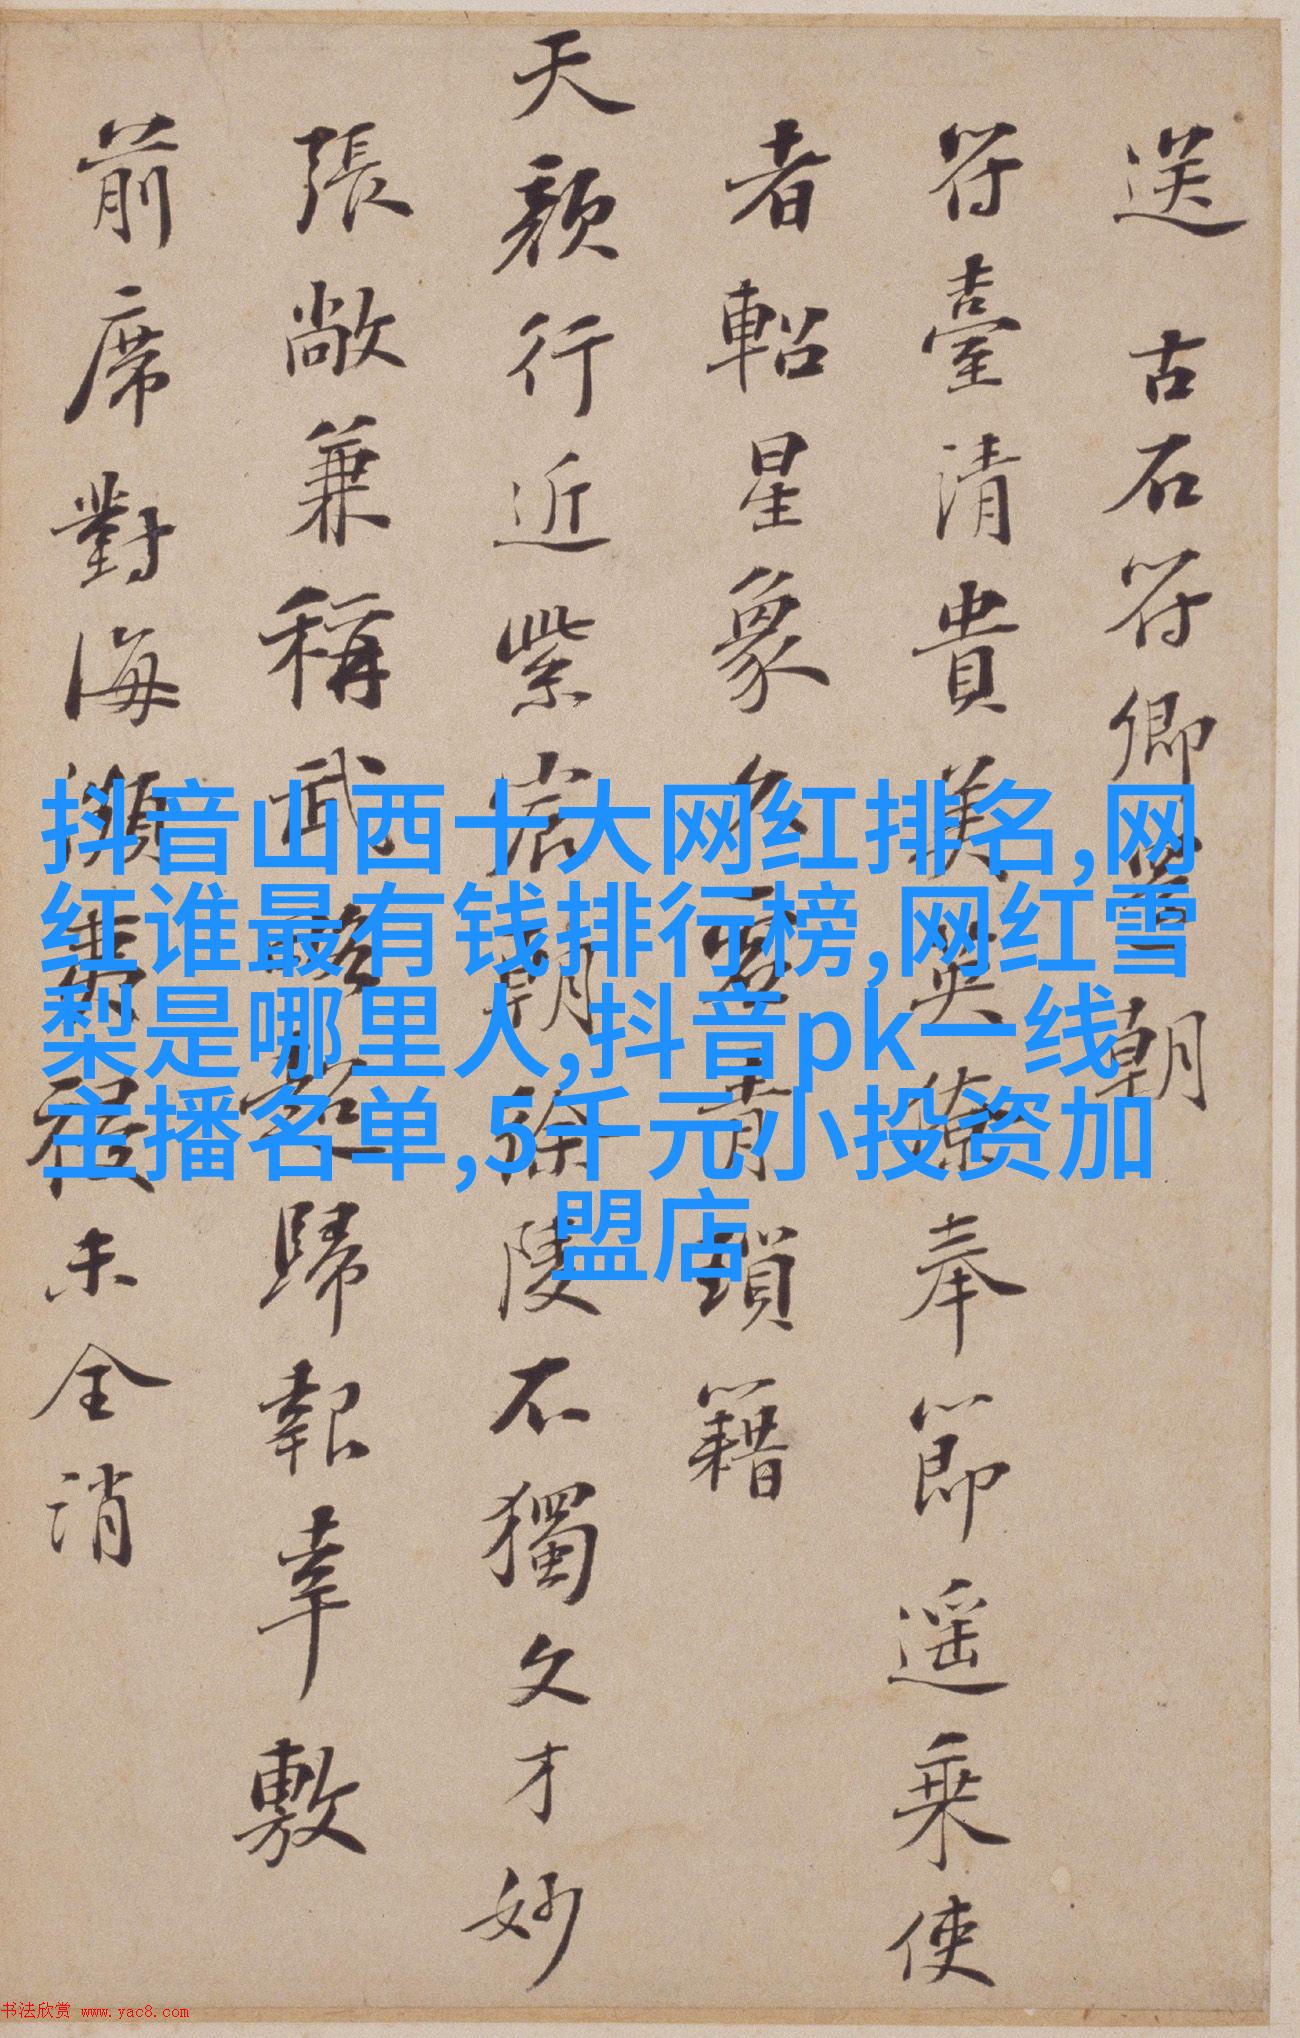 送 古石符卿朝
符臺清貴美英僚奉節遥乘使
者軺星象久懸青瑣籍
天顔行近紫宸朝徐陵不獨文才妙
張敞兼稱武略超歸報幸敷
前席對海瀕祲未全消
抖音山西十大网红排名,网
红谁最有钱排行榜,网红雪
梨是哪里人,抖音pk一线
主播名单,5千元小投资加
盟店
书法欣赏 www.yac8.com